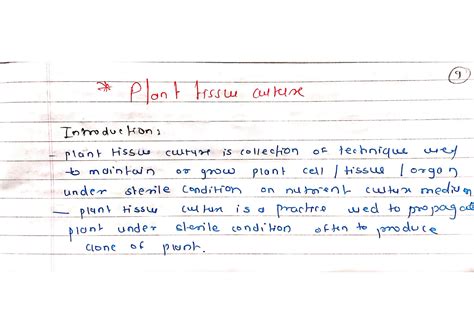 9
* Plant tissue culture
Introduction:
- plant tissue culture is collection of technique used
to maintain or grow plant cell / tissue / organ
under sterile condition on nutrient culture medium
- plant tissue culture is a practice used to propagate
plant under sterile condition often to produce
clone of plant.